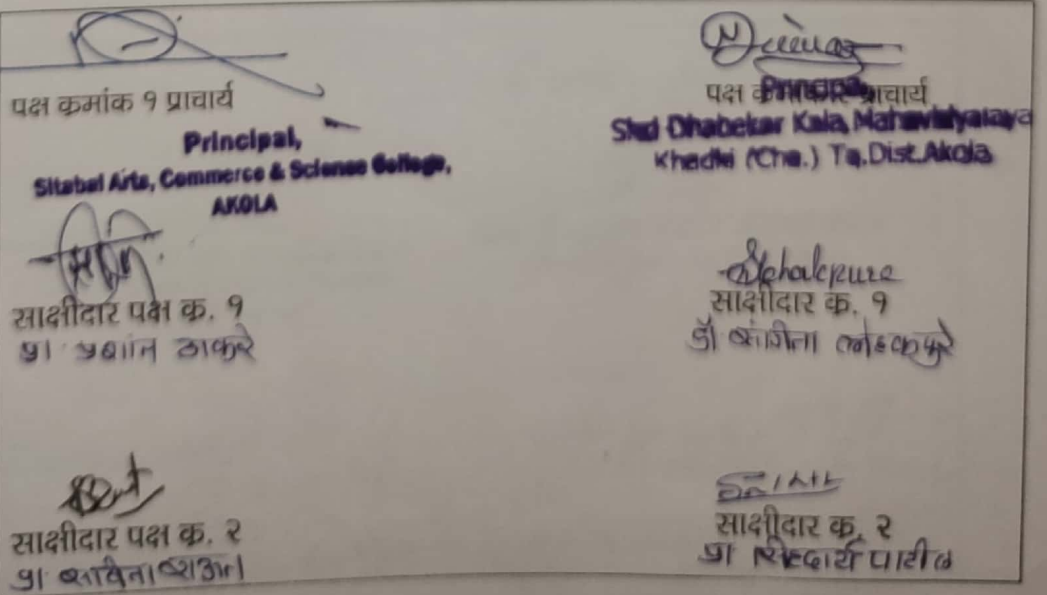 पक्ष क्रमांक १ प्राचार्य
Principal,
Sitabai Arts, Commerce & Science College,
AKOLA
साक्षीदार पक्ष क्र. १
प्रा प्रशांत ठाकरे
साक्षीदार पक्ष क्र. २
प्रा
पक्ष प्राचार्य
Principal
Shri Dhabekar Kala Mahavidyalaya
Khadki (Cha.) Tq.Dist.Akola
साक्षीदार क्र. १
डॉ संगिता
साक्षीदार क्र. २
प्रा सिद्धार्थ पाटील